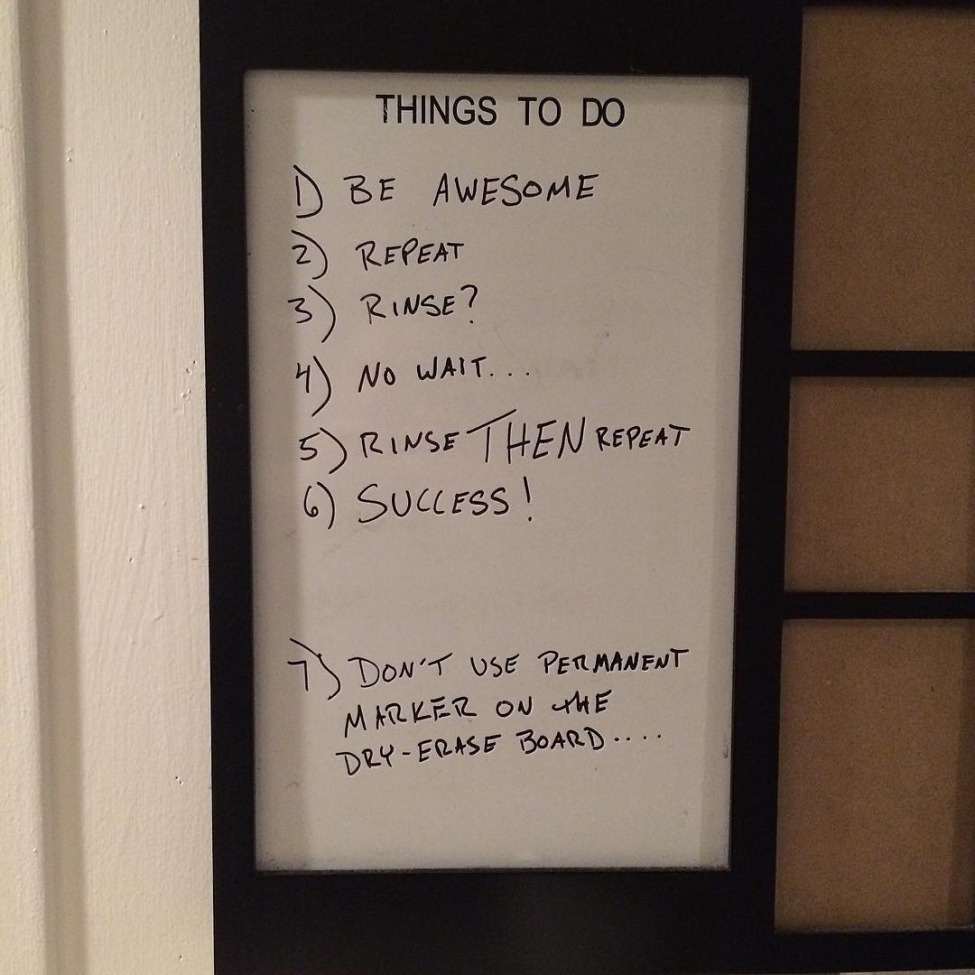 THINGS TO DO
1) BE AWESOME
2) REPEAT
3) RINSE?
4) NO WAIT...
5) RINSE THEN REPEAT
6) SUCCESS!
7) DON'T USE PERMANENT
MARKER ON THE
DRY-ERASE BOARD....